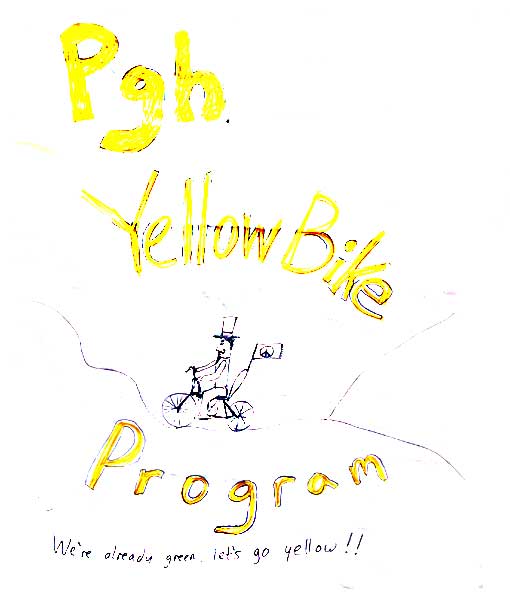 Pgh.
Yellow Bike
Program
We're already green, let's go yellow!!